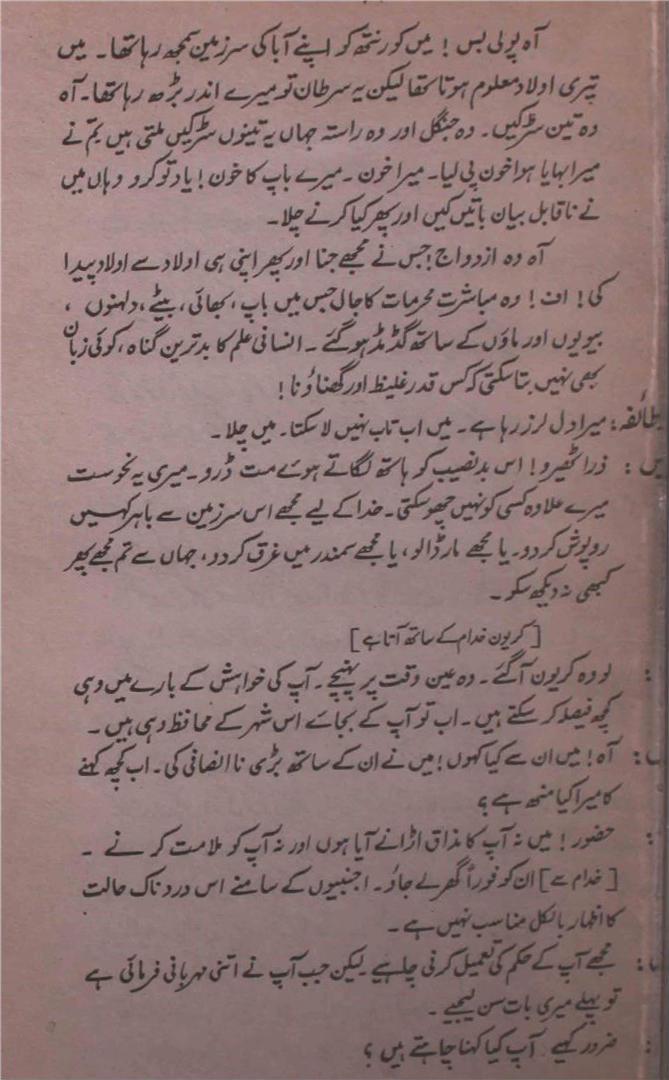 آہ پولی بس! میں کورنتھ کو اپنے آبا کی سرزمین سمجھ رہا تھا۔ میں
تیری اولاد معلوم ہوتا تھا لیکن یہ سرطان تو میرے اندر بڑھ رہا تھا۔ آہ
وہ تین سڑکیں۔ وہ جنگل اور وہ راستہ جہاں یہ تینوں سڑکیں ملتی ہیں تم نے
میرا بہایا ہوا خون پی لیا۔ میرا خون۔ میرے باپ کا خون! یاد تو کرو وہاں میں
نے ناقابل بیان باتیں کیں اور پھر کیا کرنے چلا۔
آہ وہ ازدواج! جس نے مجھے جنا اور پھر اپنی ہی اولاد سے اولاد پیدا
کی! اف! وہ مباشرت محرمات کا جال جس میں باپ، بھائی، بیٹے، دلہنوں،
بیویوں اور ماؤں کے ساتھ گڈمڈ ہو گئے۔ انسانی علم کا بدترین گناہ، کوئی زبان
بھی نہیں بتا سکتی کہ کس قدر غلیظ اور گھناؤنا!
طائفہ: میرا دل لرز رہا ہے۔ میں اب تاب نہیں لا سکتا۔ میں چلا۔
س: ذرا ٹھیرو! اس بدنصیب کو ہاتھ لگاتے ہوئے مت ڈرو۔ میری یہ نحوست
میرے علاوہ کسی کو نہیں چھو سکتی۔ خدا کے لیے مجھے اس سرزمین سے باہر کہیں
روپوش کر دو۔ یا مجھے مار ڈالو، یا مجھے سمندر میں غرق کر دو، جہاں سے تم مجھے پھر
کبھی نہ دیکھ سکو۔
[کریون خدام کے ساتھ آتا ہے]
: لو وہ کریون آ گئے۔ وہ عین وقت پر پہنچے۔ آپ کی خواہش کے بارے میں وہی
کچھ فیصلہ کر سکتے ہیں۔ اب تو آپ کے بجائے اس شہر کے محافظ وہی ہیں۔
: آہ! میں ان سے کیا کہوں! میں نے ان کے ساتھ بڑی ناانصافی کی۔ اب کچھ کہنے
کا میرا کیا منھ ہے؟
: حضور! میں نہ آپ کا مذاق اڑانے آیا ہوں اور نہ آپ کو ملامت کرنے۔
[خدام سے] ان کو فوراً گھر لے جاؤ۔ اجنبیوں کے سامنے اس دردناک حالت
کا اظہار بالکل مناسب نہیں ہے۔
: مجھے آپ کے حکم کی تعمیل کرنی چاہیے لیکن جب آپ نے اتنی مہربانی فرمائی ہے
تو پہلے میری بات سن لیجیے۔
: ضرور کہیے آپ کیا کہنا چاہتے ہیں؟